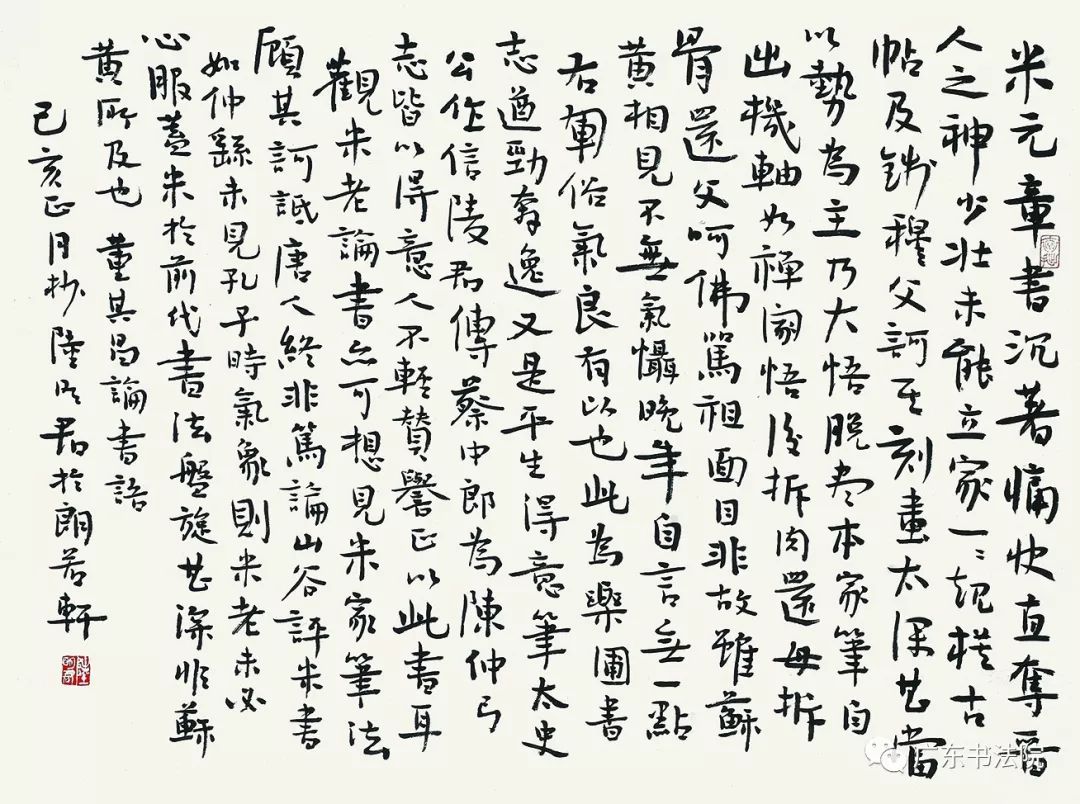 米元章書沉著痛快直奪晉
人之神少壯未能立家一一規模古
帖及錢穆父訶其刻畫太深其當
以勢為主乃大悟脫盡本家筆自
出機軸如禪家悟後拆肉還母拆
骨還父呵佛罵祖面目非故雖蘇
黃相見不無氣懾晚年自言無一點
右軍俗氣良有以也此為樂圃書
志遒勁奇逸又是平生得意筆太史
公作信陵君傳蔡中郎為陳仲弓
志皆以得意人不輕贊譽正以此書耳
觀米老論書亦可想見米家筆法
顧其訶詆唐人終非篤論山谷評米書
如仲繇未見孔子時氣象則米老未必
心服蓋米於前代書法盤旋甚深非蘇
黃所及也 董其昌論書語
己亥正月抄陸明君於朗若軒
广东书法院